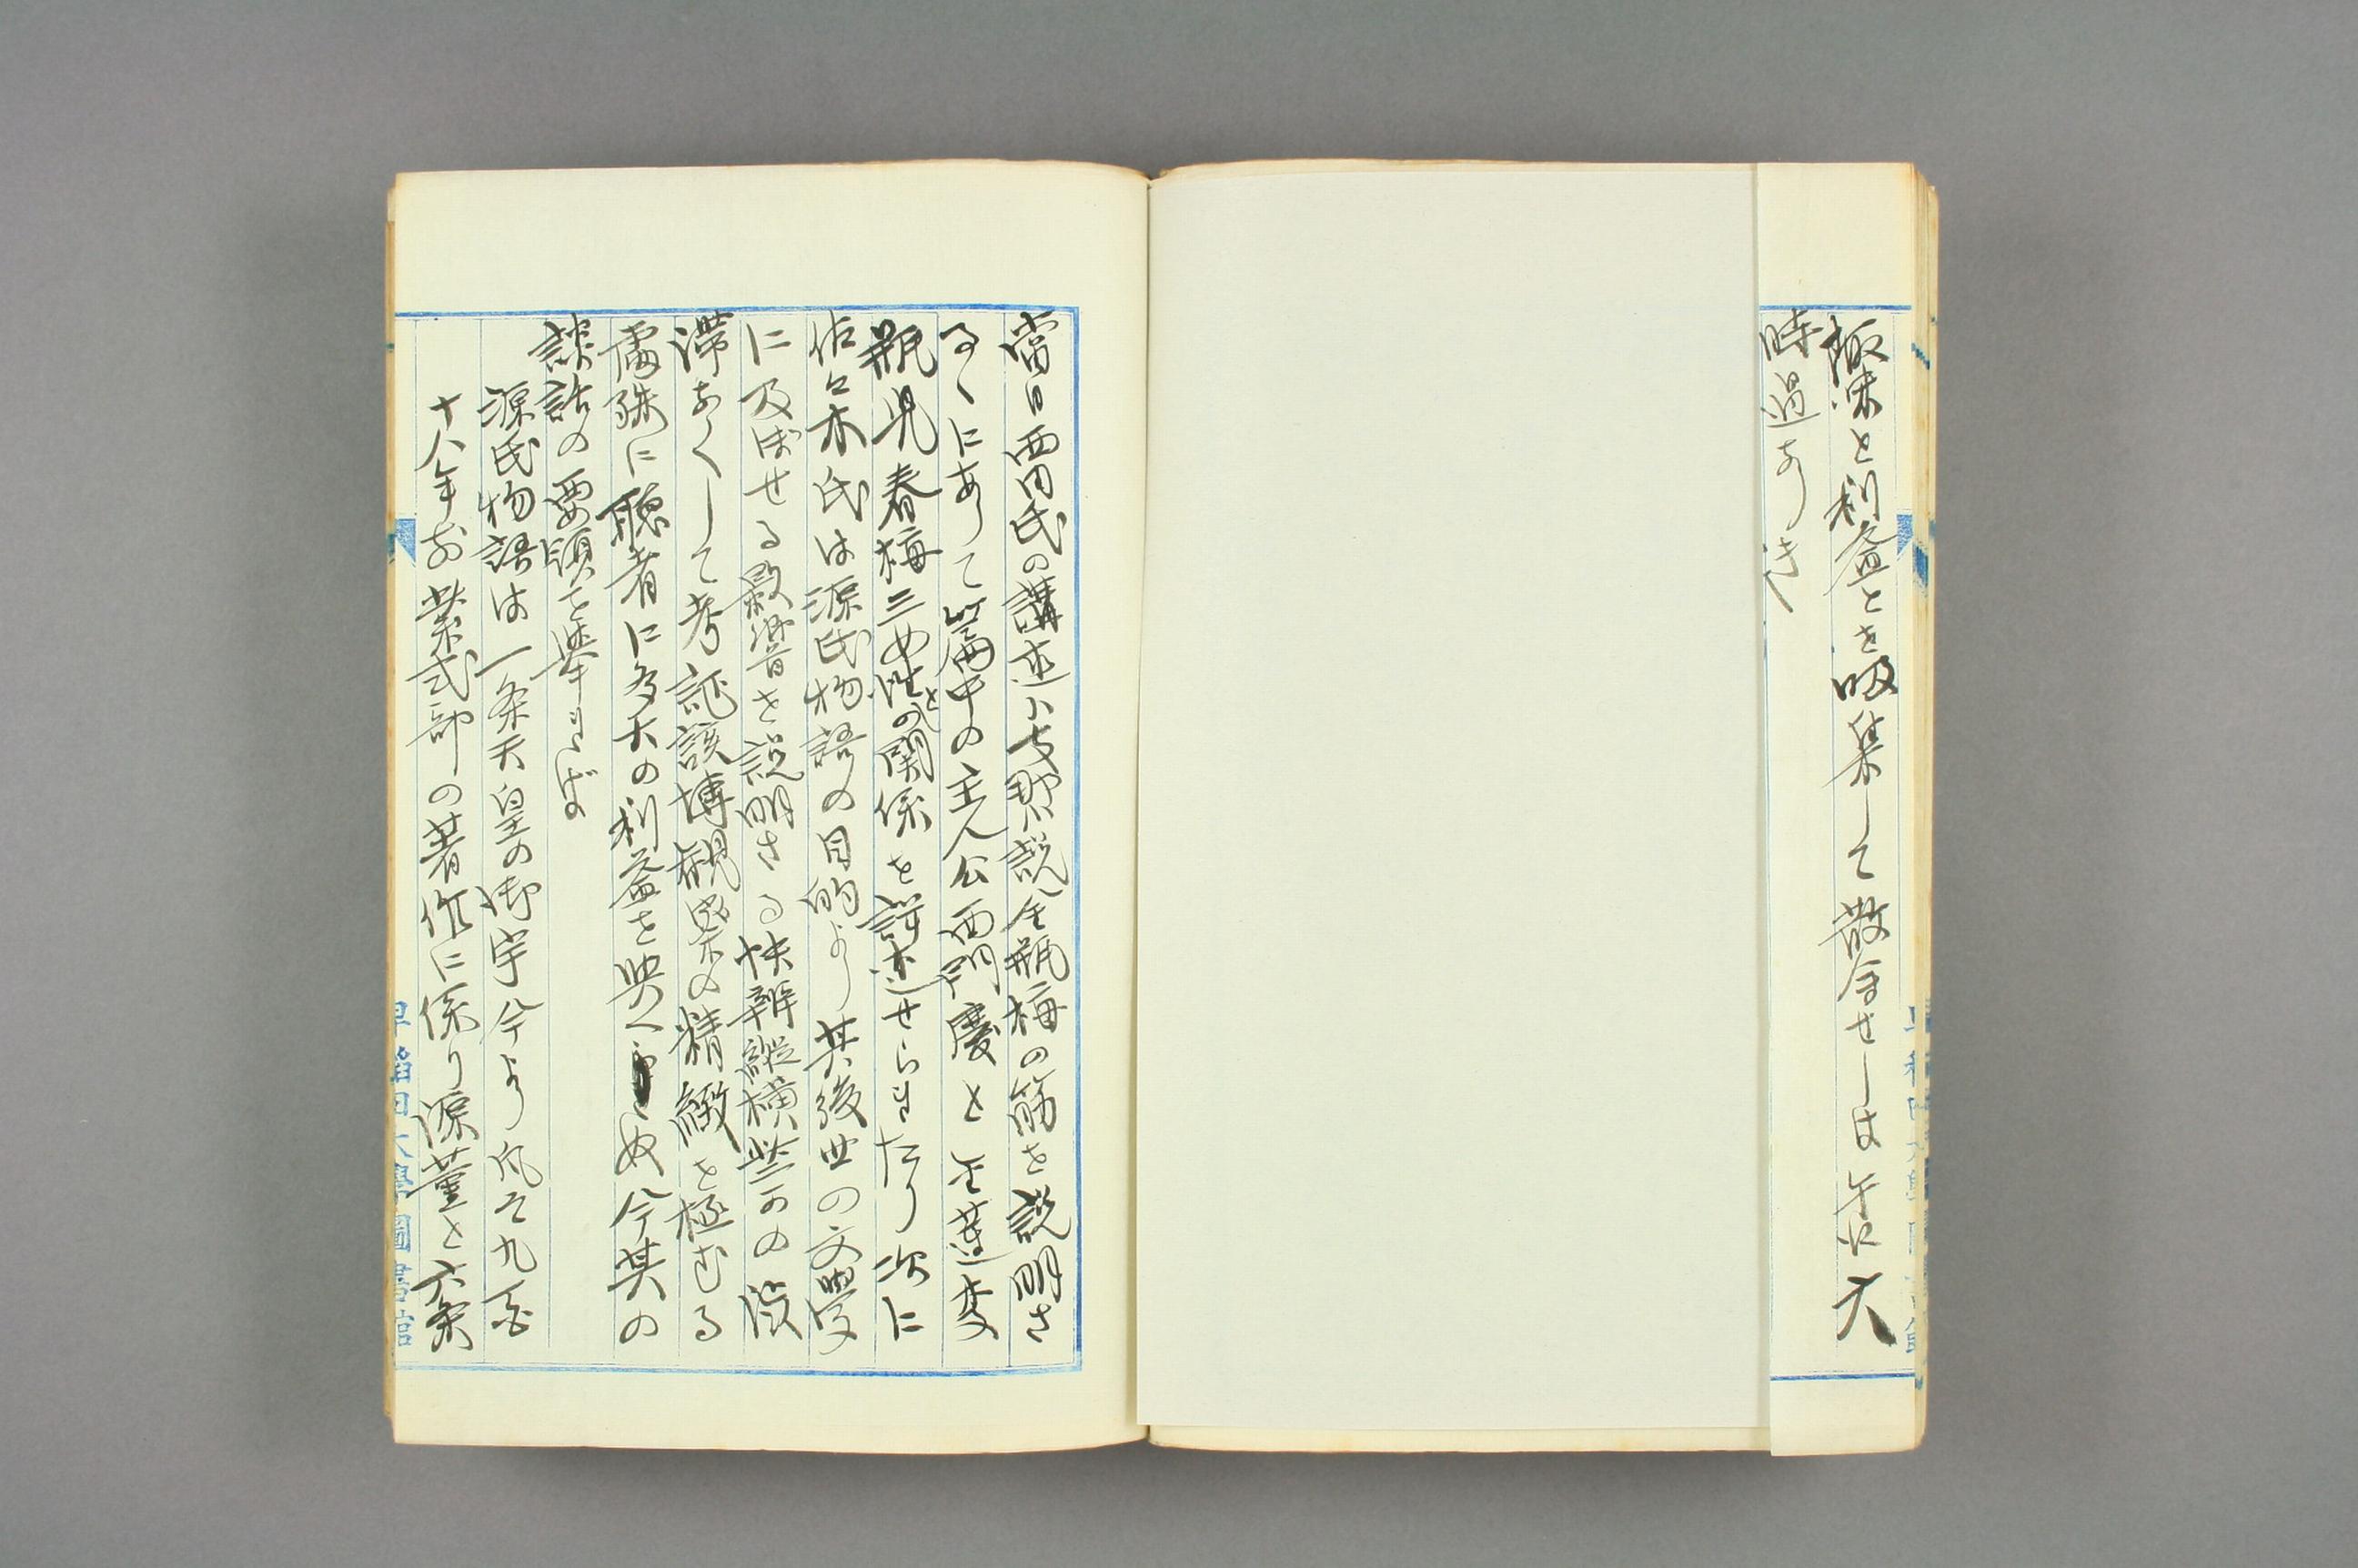 趣味と利益とを吸集して散会せしは午后大
時過なりき
當日西田氏の講述ハ支那小説金瓶梅の筋を説明さ
るゝにありて篇中の主人公西門慶と金蓮李
瓶児春梅三女性との関係を詳述せられたり次に
佐々木氏は源氏物語の目的より其後世の文學
に及ぼせる影響を説明さる快辨縦横些かの渋
滞なくして考証該博観察の精緻を極むる
處殊に聴者に多大の利益を與へ
ぬ今其の
談話の要領を挙ればば
源氏物語は一条天皇の御宇今より凡そ九百
十八年前紫式部の著作に係り源薫と六条
早稲田大學圖書館